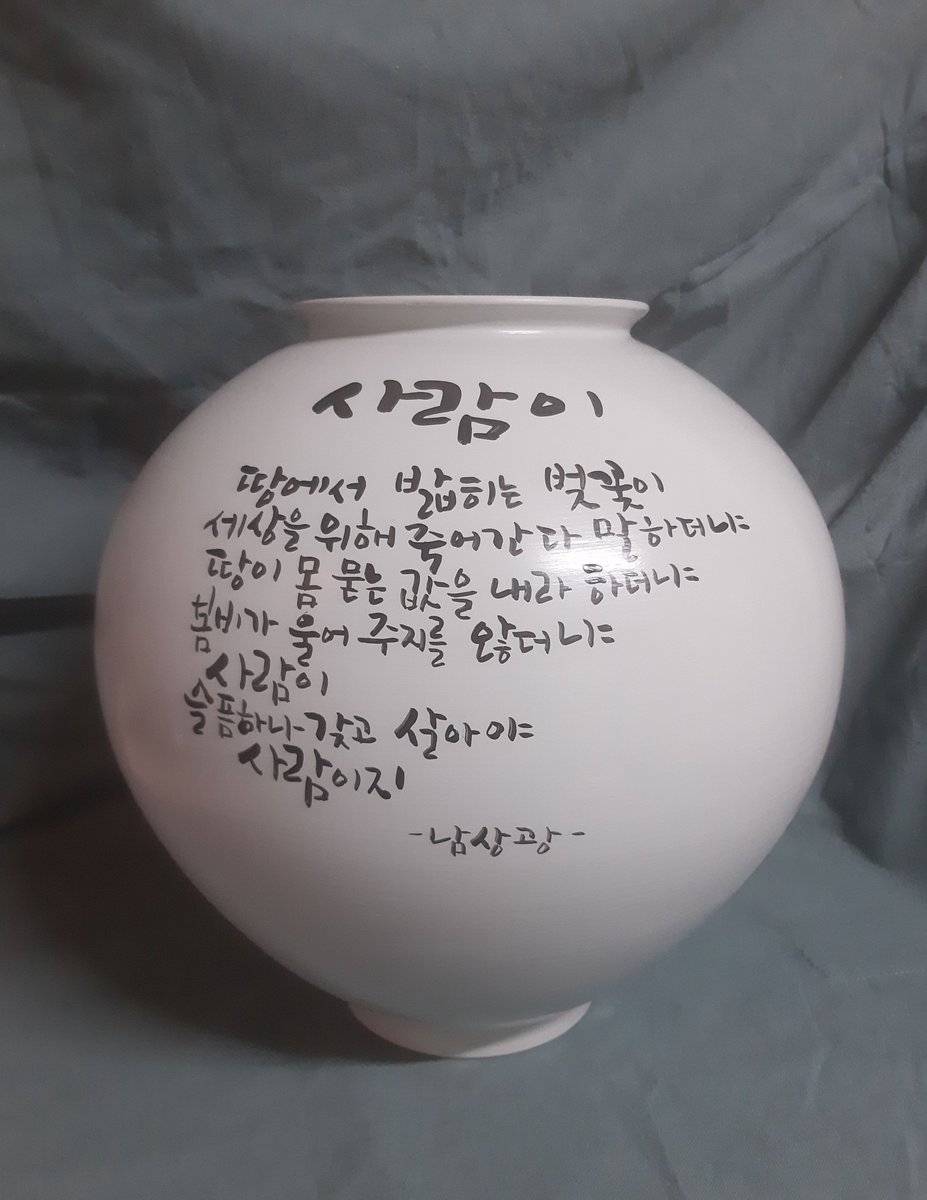 사람이
땅에서 밟히는 벚꽃이
세상을 위해 죽어간다 말하더냐
땅이 몸 묻는 값을 내라 하더냐
봄비가 울어 주지를 않더냐
사람이
슬픔하나 갖고 살아야
사람이지
-남상광-